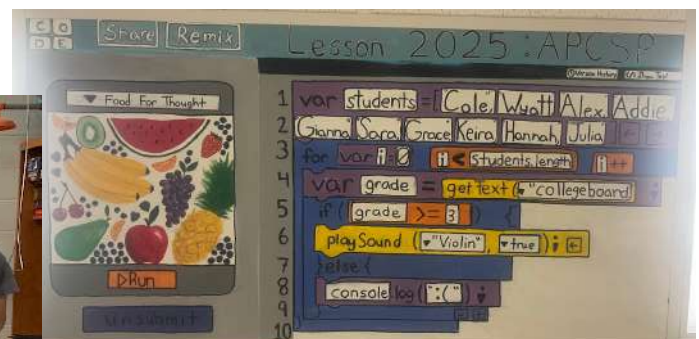 CO
DE
Share Remix
Lesson 2025: APCSP
Version History
Food For Thought
1 var students = [Cole, Wyatt Alex, Addie
2 Gianna, Sara, Grace Keira, Hannah, Julia
3 for var i = 0 i < students.length i++
4 var grade = getText(▾"collegeboard ;
5 if ( grade >= 3 ) {
6 playSound (▾"Violin", ▾true) ;
7 } else {
8 console.log (":(") ;
9
10
▷Run
Unsubmit